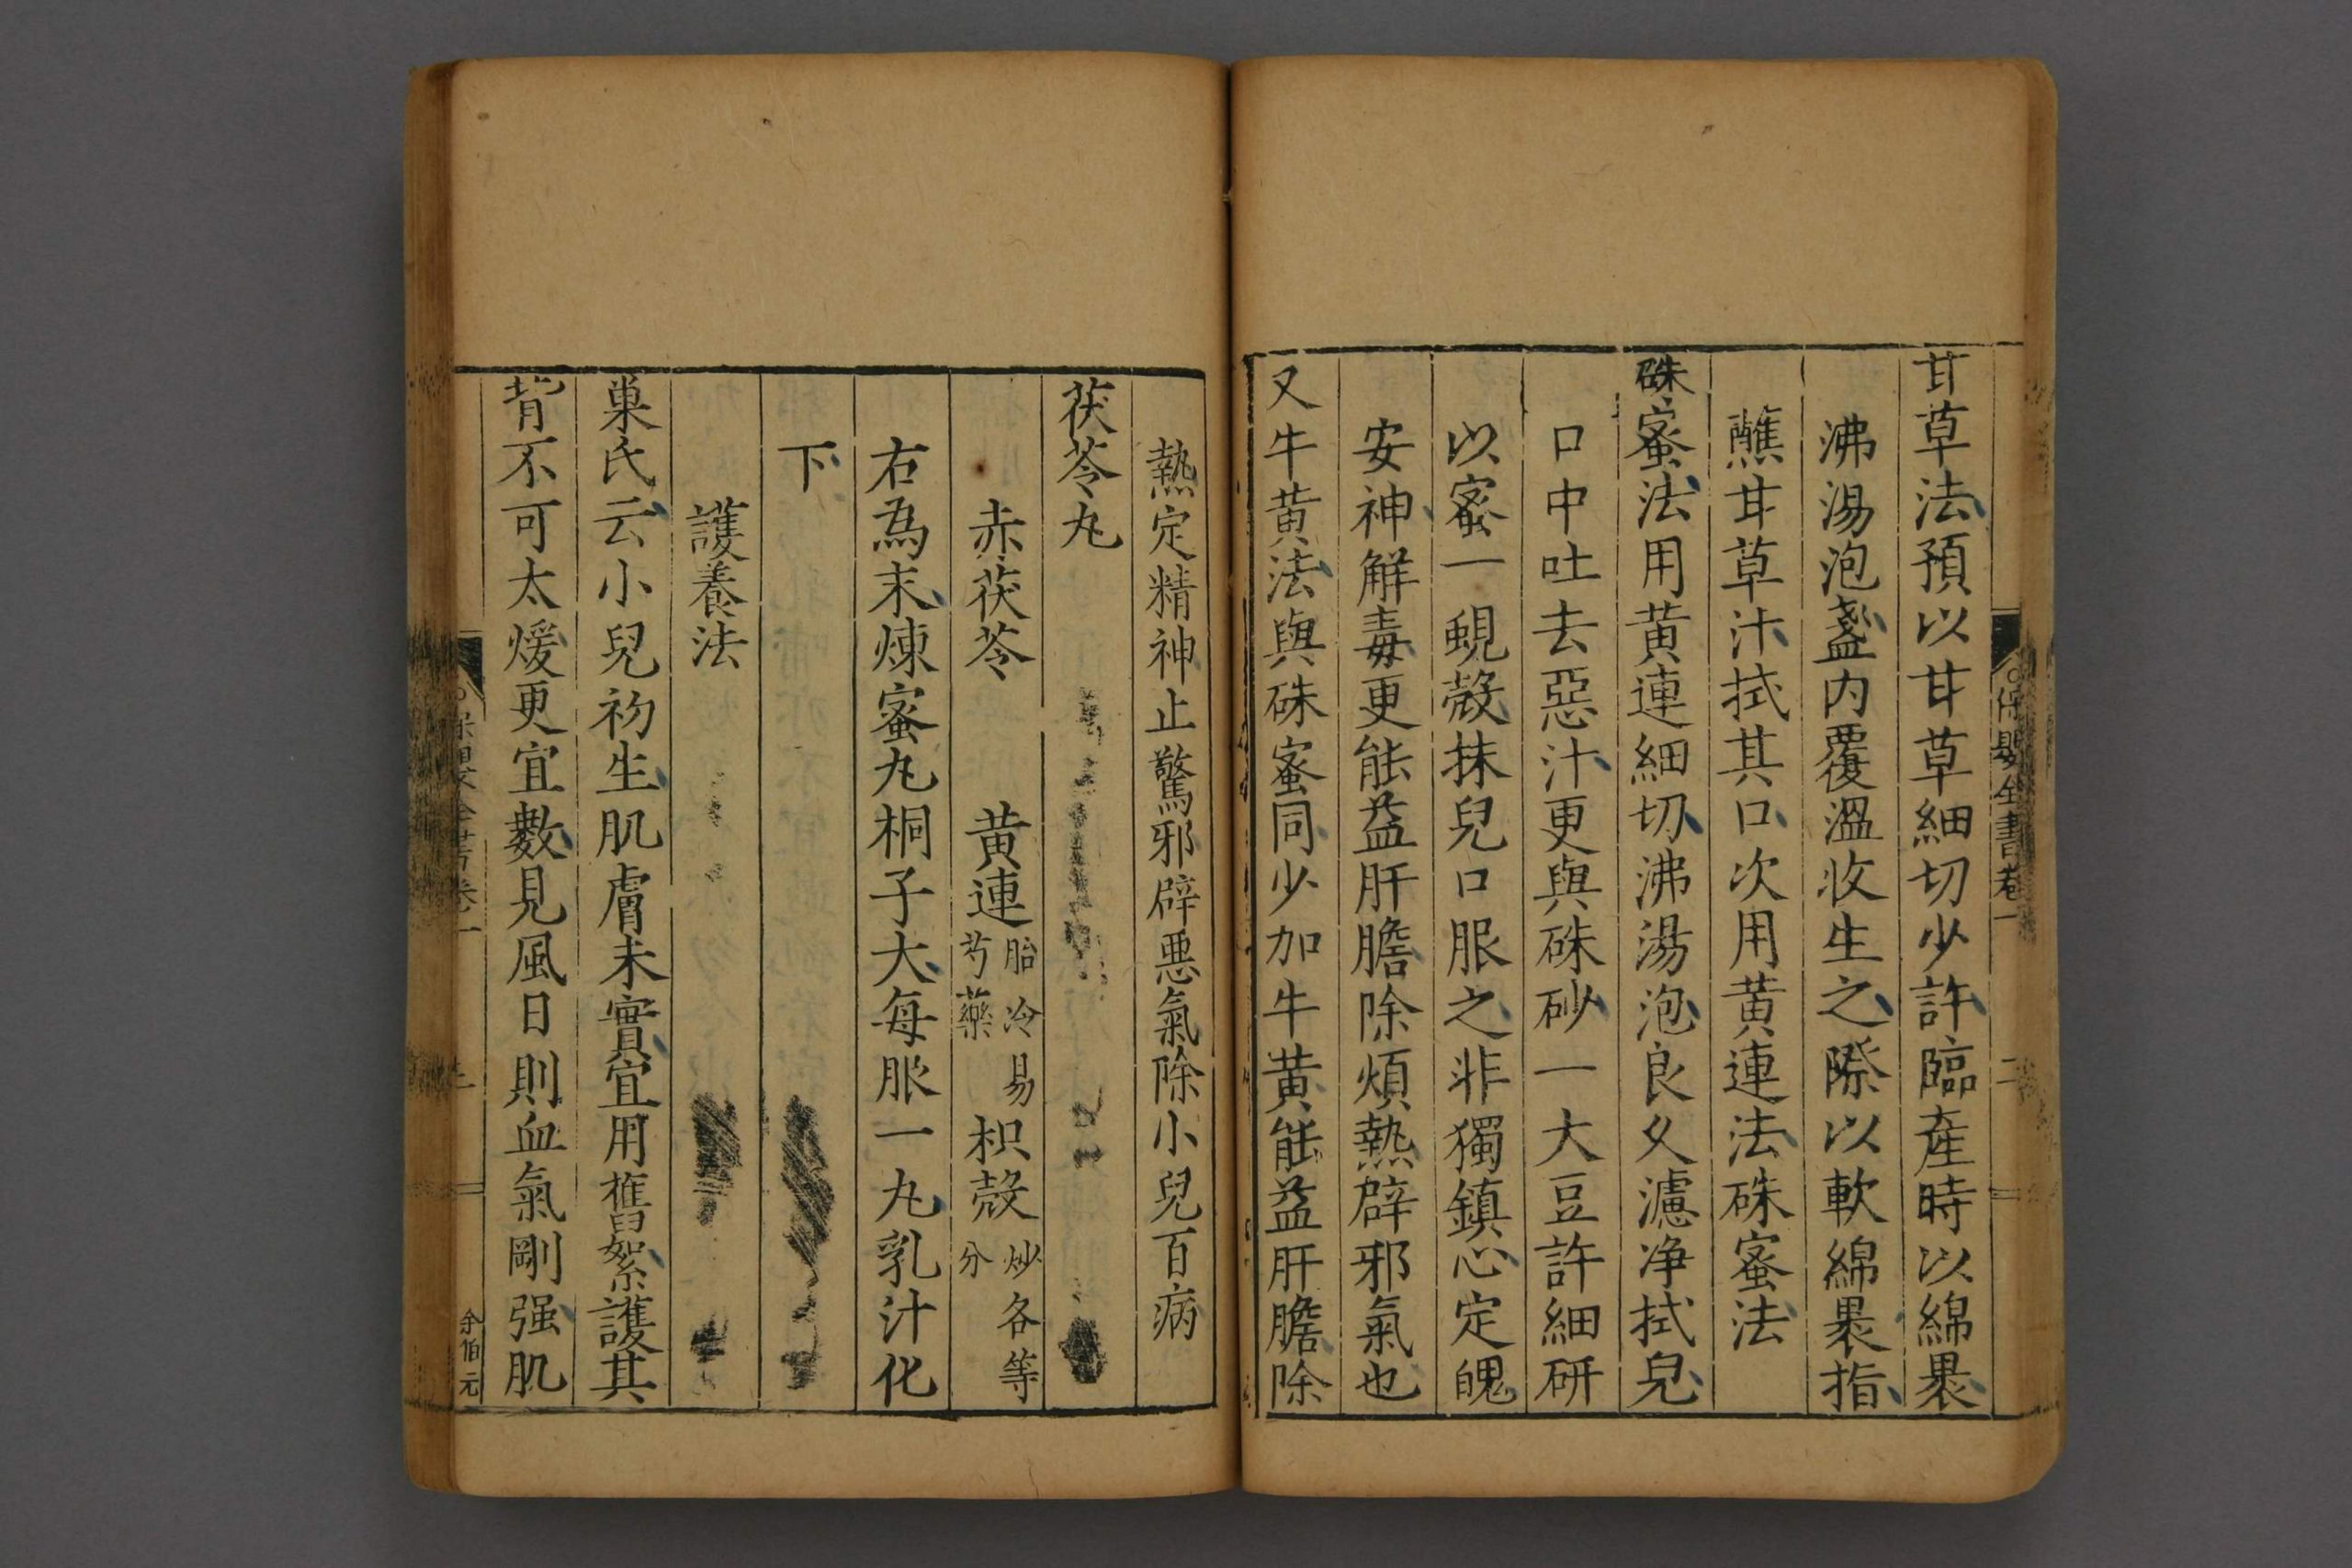 保嬰全書卷一
二
甘草法預以甘草細切少許臨產時以綿裹
沸湯泡盞内覆溫收生之際以軟綿裹指
蘸甘草汁拭其口次用黄連法硃蜜法
硃蜜法用黄連細切沸湯泡良乆濾净拭皃
口中吐去惡汁更與硃砂一大豆許細研
以蜜一蜆殻抹兒口服之非獨鎮心定魄
安神解毒更能益肝膽除煩熱辟邪氣也
又牛黄法與硃蜜同少加牛黄能益肝膽除
熱定精神止驚邪辟悪氣除小兒百病
茯苓丸
赤茯苓 黄連胎冷易芍藥 枳殻炒各等分
右為末煉蜜丸桐子大每服一丸乳汁化
下
護養法
巢氏云小兒初生肌膚未實宜用舊絮護其
背不可太煖更宜數見風日則血氣剛强肌
保嬰全書卷一
余伯元